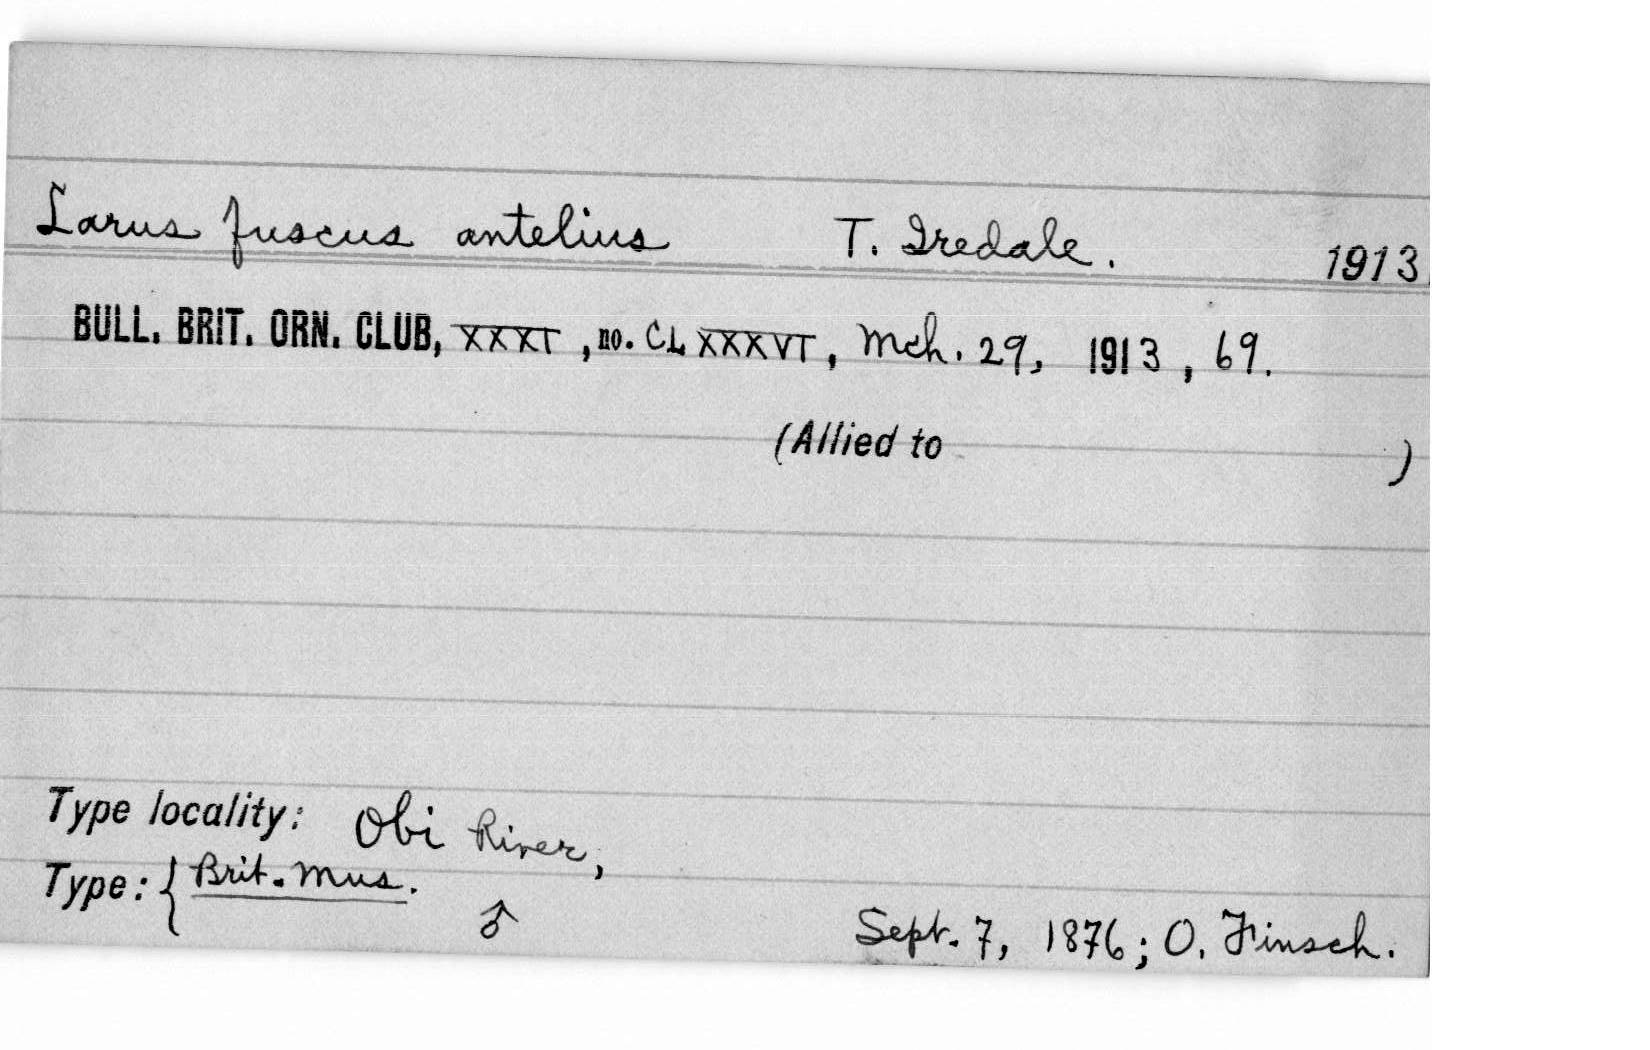 Larus fuscus antelius T. Iredale. 1913
BULL. BRIT. ORN. CLUB, XXXI, no. CLXXXVI, Mch. 29, 1913, 69.
(Allied to )
Type locality: Obi River,
Type: { Brit. Mus. ♂ Sept. 7, 1876; O. Finsch.